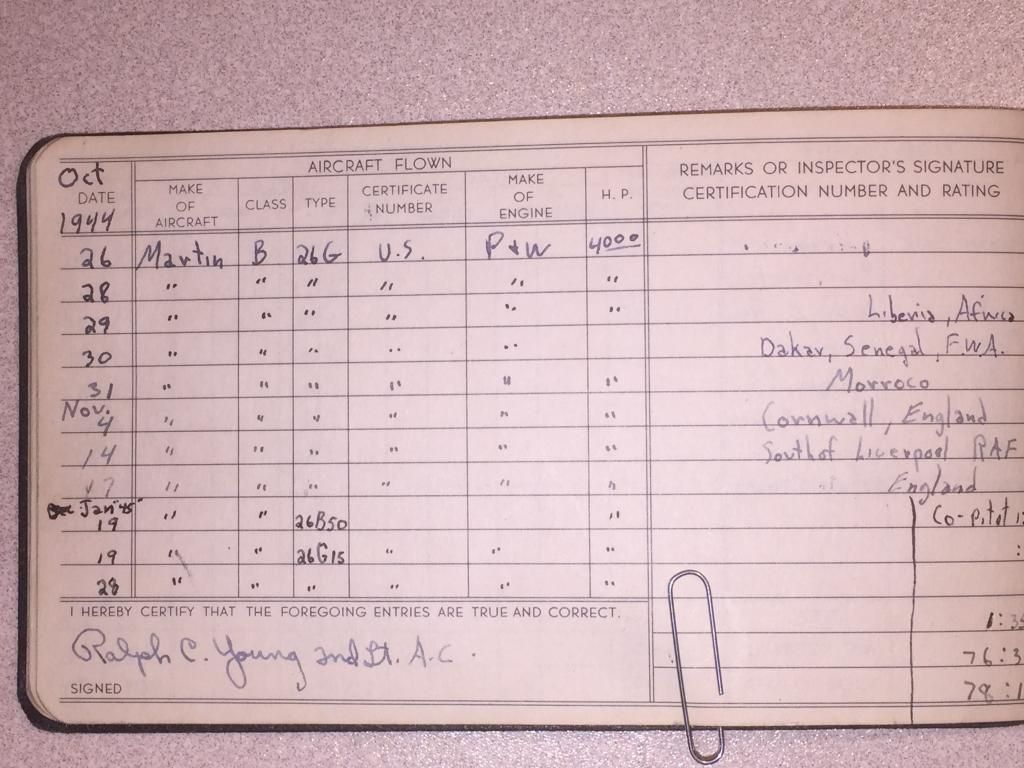 Oct
AIRCRAFT FLOWN
REMARKS OR INSPECTOR'S SIGNATURE
CERTIFICATION NUMBER AND RATING
DATE MAKE OF AIRCRAFT CLASS TYPE CERTIFICATE NUMBER MAKE OF ENGINE H. P.
1944
26 Martin B 26G U.S. P & W 4000
28 " " " " " "
29 " " " " " " Liberia, Africa
30 " " " " " Dakar, Senegal, F.W.A.
31 " " " " " " Morroco
Nov.
4 " " " " " " Cornwall, England
14 " " " " " " South of Liverpool RAF
17 " " " " " " England
Jan "45"
19 " " 26B50 " Co-pilot
19 " " 26G15 " " " :
28 " " " " " "
I HEREBY CERTIFY THAT THE FOREGOING ENTRIES ARE TRUE AND CORRECT.
1:3
Ralph C. Young 2nd Lt. A.C.
76:3
SIGNED
78:1